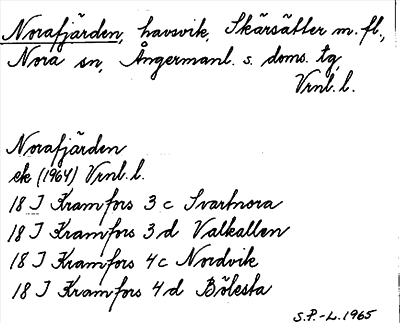 Norafjärden, havsvik, Skärsätter m. fl.,
Nora sn, Ångermanl. s. doms. tg,
Vrnl. l.
Norafjärden
ek (1964) Vrnl. l.
18 I Kramfors 3 c Svartnora
18 I Kramfors 3 d Valkallen
18 I Kramfors 4 c Nordvik
18 I Kramfors 4 d Bölesta
S.P.-L. 1965